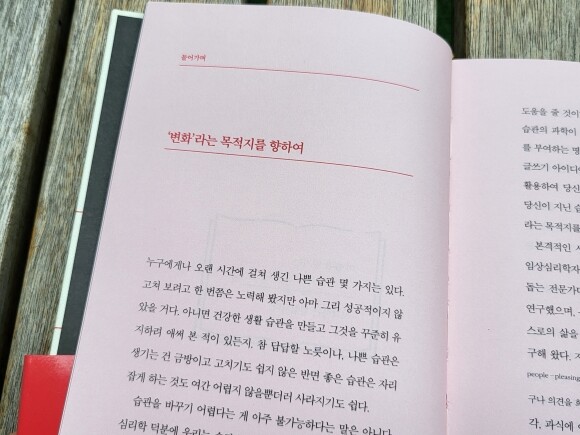 들어가며
‘변화’라는 목적지를 향하여
누구에게나 오랜 시간에 걸쳐 생긴 나쁜 습관 몇 가지는 있다.
고쳐 보려고 한 번쯤은 노력해 봤지만 아마 그리 성공적이지 않
았을 거다. 아니면 건강한 생활 습관을 만들고 그것을 꾸준히 유
지하려 애써 본 적이 있든지. 참 답답할 노릇이나, 나쁜 습관은
생기는 건 금방이고 고치기도 쉽지 않은 반면 좋은 습관은 자리
잡게 하는 것도 여간 어렵지 않을뿐더러 사라지기도 쉽다.
습관을 바꾸기 어렵다는 게 아주 불가능하다는 말은 아니다.
심리학 덕분에 우리는
도움을 줄 것이
습관의 과학이
를 부여하는 명
글쓰기 아이디어
활용하여 당신
당신이 지닌 습
라는 목적지를
본격적인
임상심리학자
돕는 전문가
연구했으며,
스로의 삶을
구해 왔다.
people-pleasing
구나 의견을
각, 파식에